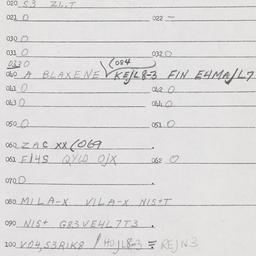 020 S3 ZL.T
021 0 022 -
030 0
031 0 032 0
033 0 (084
040 A BLAXENE √ KE/L8-3 FIN E4MA/L7
041 0 042 0
043 0 044 0
050 0 051 0
060 ZAC XX (069
061 F/4S QYLD O/X 062 0
070 0
080 MILA-X VILA-X NIS+T
090 NIS+ G83VE4L7T3
100 V04,S3RIK8 / H0/L8-3 = REJN3